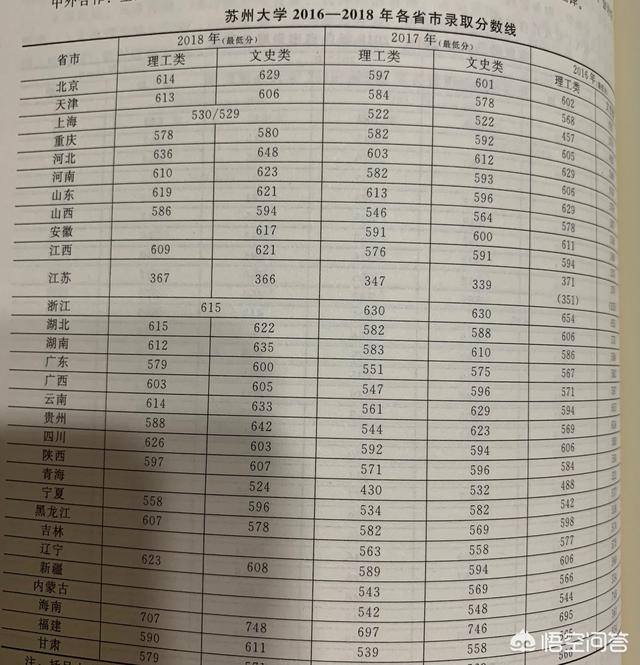 苏州大学 2016—2018 年各省市录取分数线
省市 2018 年(最低分) 2017 年(最低分) 2016年
理工类 文史类 理工类 文史类 理工类
北京 614 629 597 601 602
天津 613 606 584 578 568
上海 530/529 522 522 457
重庆 578 580 582 592 605
河北 636 648 603 612 629
河南 610 623 582 593 606
山东 619 621 613 596 629
山西 586 594 546 564 578
安徽 617 591 600 611
江西 609 621 576 591 594
江苏 367 366 347 339 371
(351)
浙江 615 630 630 654
湖北 615 622 582 588 606
湖南 612 635 583 610 586
广东 579 600 551 575 567
广西 603 605 547 596 571
云南 614 633 561 629 594
贵州 588 642 544 623 569
四川 626 603 592 594 606
陕西 597 607 571 596 584
青海 524 430 532 488
宁夏 558 596 534 582 542
黑龙江 607 578 582 569 598
吉林 563 558 577
辽宁 623 608 589 594 606
新疆 543 569 566
内蒙古 542 548 544
海南 707 748 697 746 695
福建 590 611 539 558
甘肃 579
悟空问答